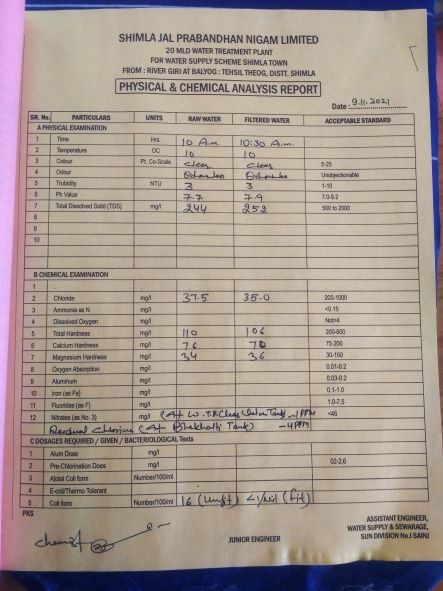 SHIMLA JAL PRABANDHAN NIGAM LIMITED
20 MLD WATER TREATMENT PLANT
FOR WATER SUPPLY SCHEME SHIMLA TOWN
FROM : RIVER GIRI AT BALYOG : TEHSIL THEOG, DISTT. SHIMLA
PHYSICAL & CHEMICAL ANALYSIS REPORT
Date : 9.11.2021
SR. No. PARTICULARS UNITS RAW WATER FILTERED WATER ACCEPTABLE STANDARD
A PHYSICAL EXAMINATION
1 Time Hrs. 10 A.m. 10:30 A.m.
2 Temperature OC 10 10
3 Colour Pt. Co-Scale Clear Clear 5-25
4 Odour Unobjectionable
5 Trubidity NTU 3 3 1-10
6 Ph Value 7.7 7.9 7.0-9.2
7 Total Dissolved Solid (TDS) mg/l 244 252 500 to 2000
8
9
10
B CHEMICAL EXAMINATION
1
2 Chloride mg/l 37.5 35.0 200-1000
3 Ammonia as N mg/l <0.15
4 Dissolved Oxygen mg/l Not>4
5 Total Hardness mg/l 110 106 200-600
6 Calcium Hardness mg/l 76 70 75-200
7 Magnesium Hardness mg/l 34 36 30-150
8 Oxygen Absorption mg/l 0.01-0.2
9 Aluminum mg/l 0.03-0.2
10 Iron (as Fe) mg/l 0.1-1.0
11 Fluorides (as F) mg/l 1.0-7.5
12 Nitrates (as No. 3) mg/l (At W.T.P. Clear Water Tank) -1 PPM <46
Residual Chlorine (At Tank) -4 PPM
C DOSAGES REQUIRED / GIVEN / BACTERIOLOGICAL Tests
1 Alum Dose mg/l
2 Pre-Chlorination Doss mg/l 02-2.6
3 Atotal Coli form Number/100/ml
4 E-coli/Thermo Tolerant
5 Coli form Number/100/ml 16 (Unfit) (fit)
PKS
Chemist
JUNIOR ENGINEER
ASSISTANT ENGINEER,
WATER SUPPLY & SEWARAGE,
SUN DIVISION No.I SAINJ